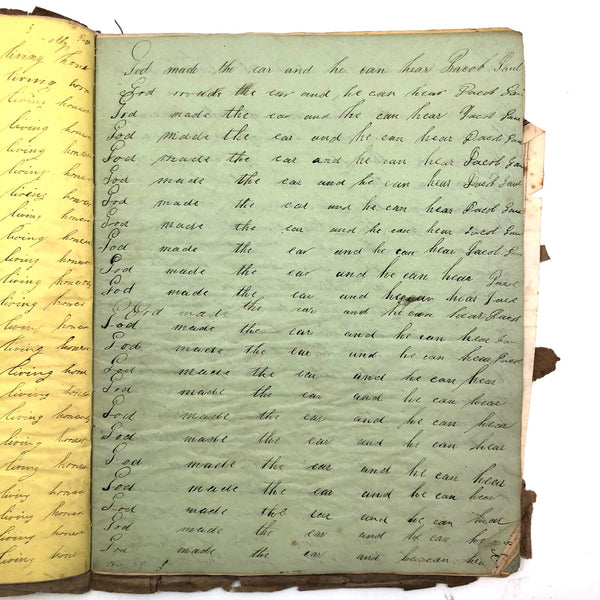 living hones
living hon
living hones
living hones
living hones
living hones
living hones
living hones
living hones
living hones
living hones
living hones
living hones
living hones
living hones
living hones
living hones
living honest
living hones
living hones
living hones
living hones
living hones
God made the ear and he can hear Jacob Gaul
God made the ear and he can hear Jacob Gau
God made the ear and he can hear Jacob Gau
God made the ear and he can hear Jacob Gau
God made the ear and he can hear Jacob Gau
God made the ear and he can hear Jacob Gaul
God made the ear and he can hear Jacob Gau
God made the ear and he can hear Jacob Gau
God made the ear and he can hear Jacob Gau
God made the ear and he can hear Jacob
God made the ear and he can hear Jacob
God made the ear and he can hear Jacob
God made the ear and he can hear
God made the ear and he can hear Jacob
God made the ear and he can hear
God made the ear and he can hear
God made the ear and he can hear
God made the ear and he can hear
God made the ear and he can hear
God made the ear and he can hear
God made the ear and he can hear
God made the ear and he can he
God made the ear and he can hea